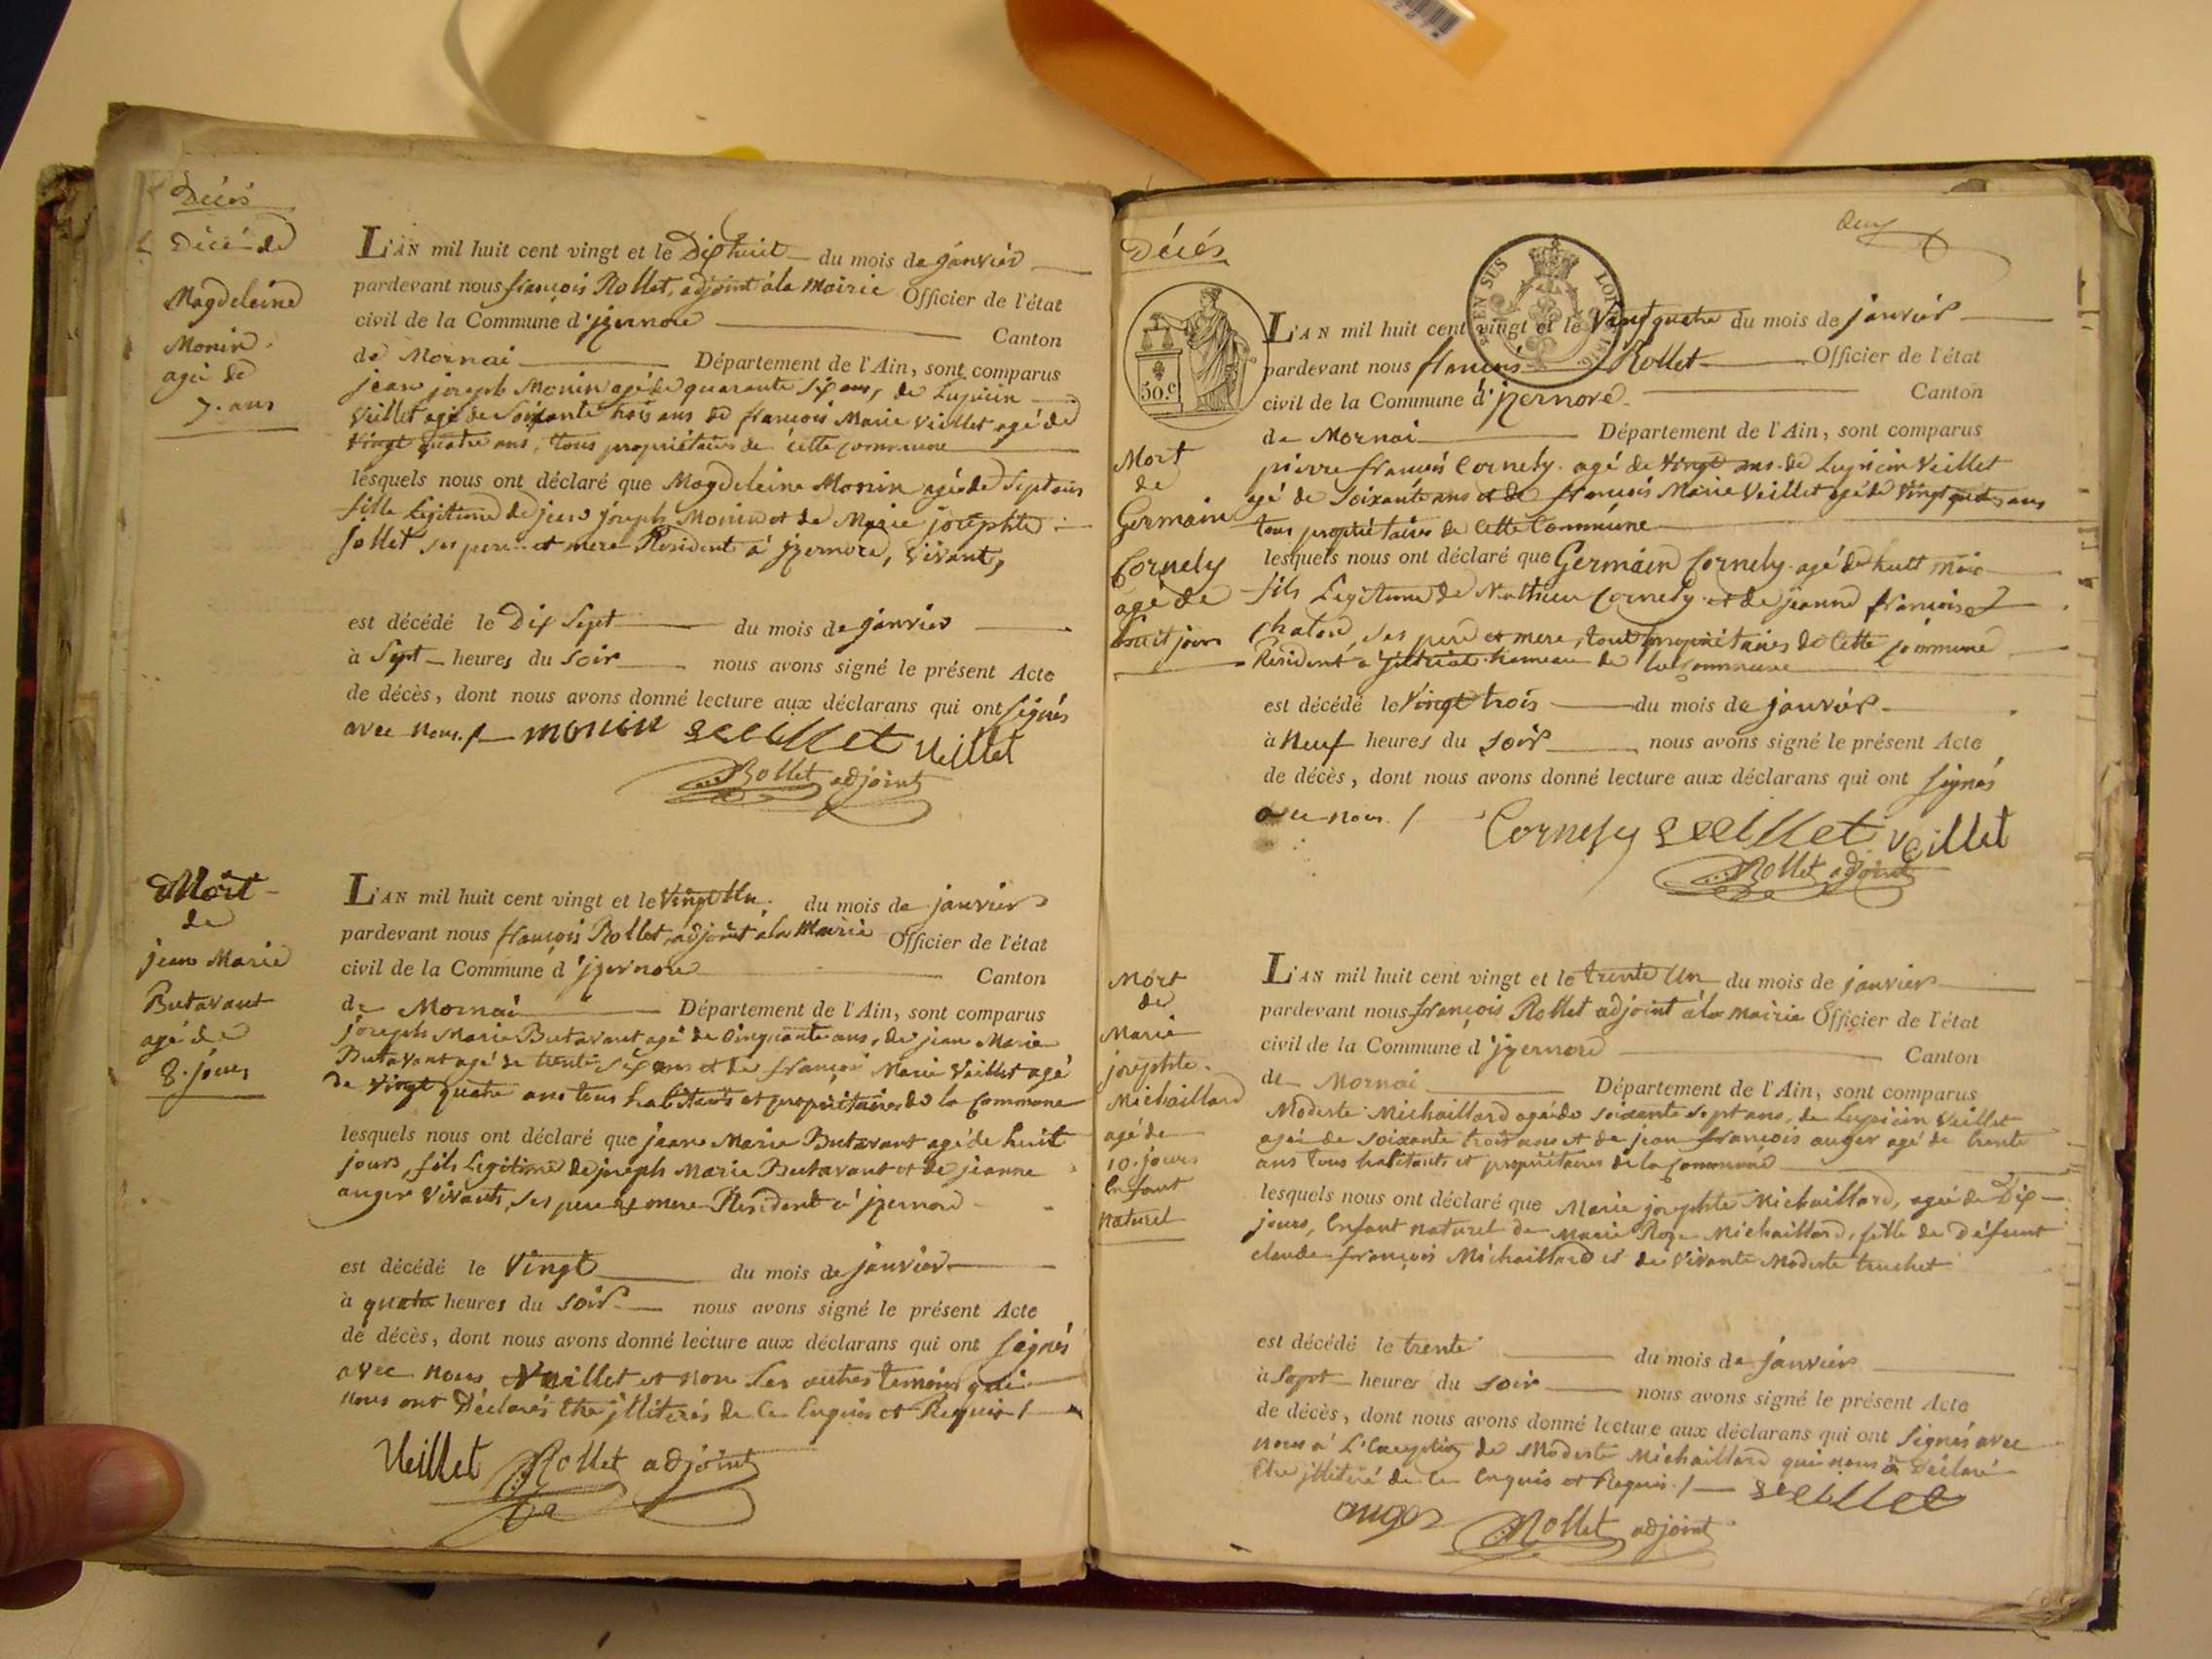 Décés
Décé de
Magdeleine
Monin
agée de
7. ans
L'AN mil huit cent vingt et le Dix huit du mois de janvier
pardevant nous françois Rollet, adjoint à la Mairie Officier de l'état
civil de la Commune d'jzernore Canton
de Mornai Département de l'Ain, sont comparus
jean joseph Monin agé de quarante six ans, de Lupicin
Veillet agé de Soixante trois ans et françois Marie Veillet agé de
vingt quatre ans, tous propriétaires de cette commune
lesquels nous ont déclaré que Magdeleine Monin agée de Sept ans
fille Légitime de jean joseph Monin et de Marie josephte
jollet ses pere et mere Résident à jzernore, vivants,
est décédé le Dix Sept du mois de janvier
à Sept heures du Soir nous avons signé le présent Acte
de décès, dont nous avons donné lecture aux déclarans qui ont signés
avec nous. /. monin Veillet Veillet
Rollet adjoint
Mort
de
jean Marie
Butavant
agé de
8. jours
L'AN mil huit cent vingt et le Vingt Un du mois de janvier
pardevant nous françois Rollet, adjoint à la Mairie Officier de l'état
civil de la Commune d'jzernore Canton
de Mornai Département de l'Ain, sont comparus
joseph Marie Butavant agé de Cinquante ans, de jean Marie
Butavant agé de trente six ans et de françois Marie Veillet agé
de Vingt quatre ans tous habitants et propriétaires de la Commune
lesquels nous ont déclaré que jean Marie Butavant agé de huit
jours, fils Légitime de joseph Marie Butavant et de jeanne
auger Vivants, ses pere et mere Résident à jzernore
est décédé le Vingt du mois de janvier
à quatre heures du Soir nous avons signé le présent Acte
de décès, dont nous avons donné lecture aux déclarans qui ont signés
avec nous Veillet et non les autres temoins qui
nous ont Déclarés être jlliterés de Ce Enquis et Requis /
Veillet Rollet adjoint
Décés
EN SUS LOI
50.c
L'AN mil huit cent vingt et le Vingt quatre du mois de janvier
pardevant nous françois Rollet Officier de l'état
civil de la Commune d'jzernore Canton
de Mornai Département de l'Ain, sont comparus
Mort
de
Germain
Cornely
agé de
huit jours
pierre françois Cornely agé de vingt ans de Lupicin Veillet
agé de Soixante ans et de françois Marie Veillet agé de Vingt quatre ans
tous propriétaires de Cette Commune
lesquels nous ont déclaré que Germain Cornely agé de huit mois
fils Legitime de Mathieu Cornely et de jeanne françoise
chaton, ses pere et mere, tout propriétaires de Cette Commune
Résident à hameau de la Commune
est décédé le Vingt trois du mois de janvier
à Neuf heures du Soir nous avons signé le présent Acte
de décès, dont nous avons donné lecture aux déclarans qui ont signés
avec nous. /
Cornely Veillet Veillet
Rollet adjoint
Mort
de
Marie
josephte
Michaillard
agé de
10. jours
Enfant
naturel
L'AN mil huit cent vingt et le trente Un du mois de janvier
pardevant nous françois Rollet adjoint à la mairie Officier de l'état
civil de la Commune d'jzernore Canton
de Mornai Département de l'Ain, sont comparus
Modeste Michaillard agée de soixante sept ans, de Lupicin Veillet
agé de soixante trois ans et de jean françois auger agé de trente
ans tous habitants et propriétaires de la Commune
lesquels nous ont déclaré que Marie josephte Michaillard, agée de Dix
jours, Enfant naturel de Marie Roze Michaillard, fille de Défunt
claude françois Michaillard et de Vivante Modeste truchet
est décédé le trente du mois de janvier
à Sept heures du soir nous avons signé le présent Acte
de décès, dont nous avons donné lecture aux déclarans qui ont signés avec
nous à L'Exception de Modeste Michaillard qui nous a Déclaré
Etre jlliteré de Ce Enquis et Requis. / Veillet
auger Rollet adjoint